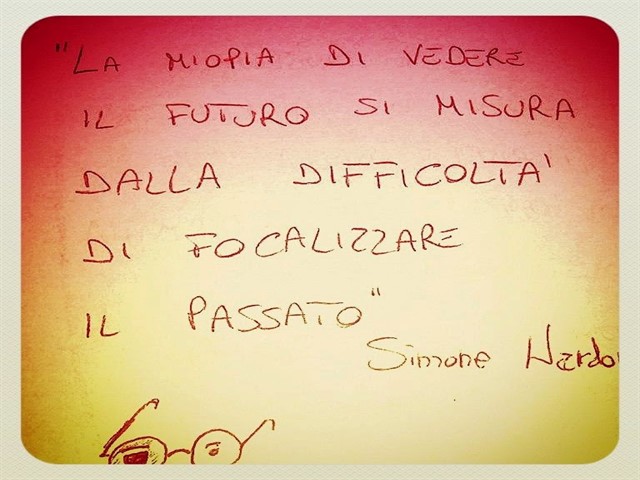 "LA MIOPIA DI VEDERE
IL FUTURO SI MISURA
DALLA DIFFICOLTA'
DI FOCALIZZARE
IL PASSATO"
Simone